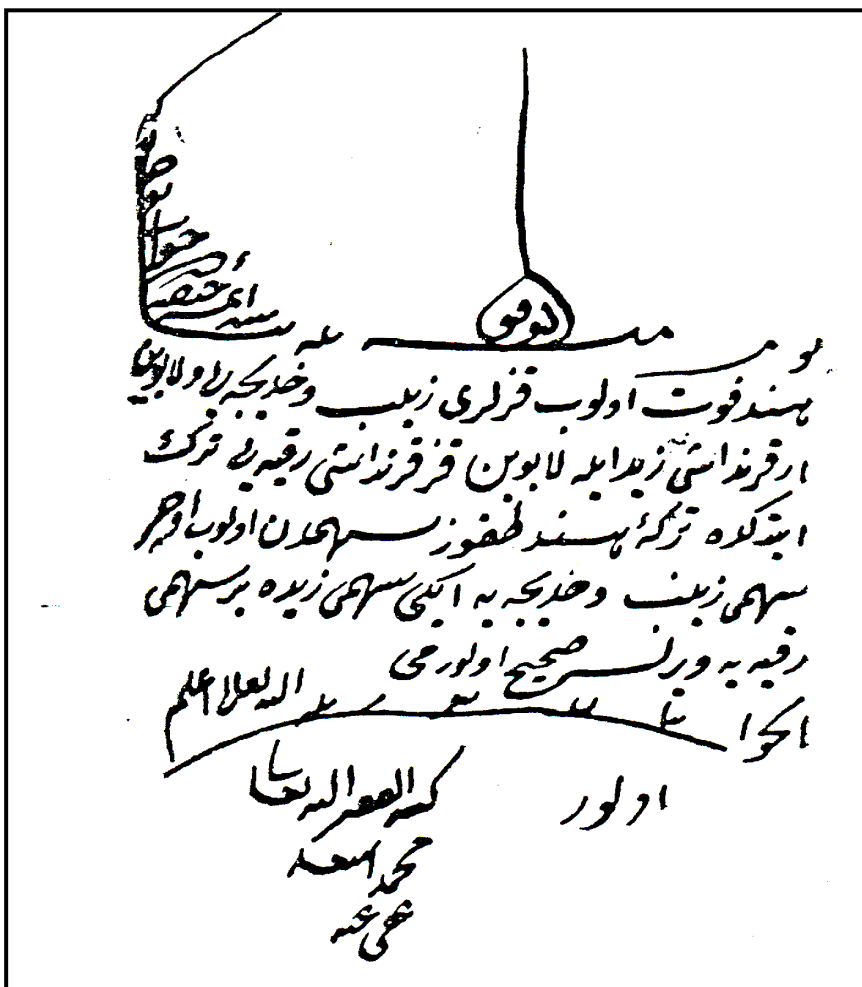 توفيق
جواب
ائمه حنفيه
بو مسئله
هند فوت اولوب قزلرى زينب و خديجه يى و لابوين
ار قرنداشى زيد ايله لابوين قز قرنداشى رقيه يى ترك
ايتدكده تركهٔ هند طقوز سهمدن اولوب اوچر
سهمى زينب و خديجه يه ايكى سهمى زيده بر سهمى
رقيه يه ويرلسه صحيح اولورمى
الجواب الله تعالى اعلم
اولور
كتبه الفقير اليه تعالى
محمد اسعد
عفى عنه